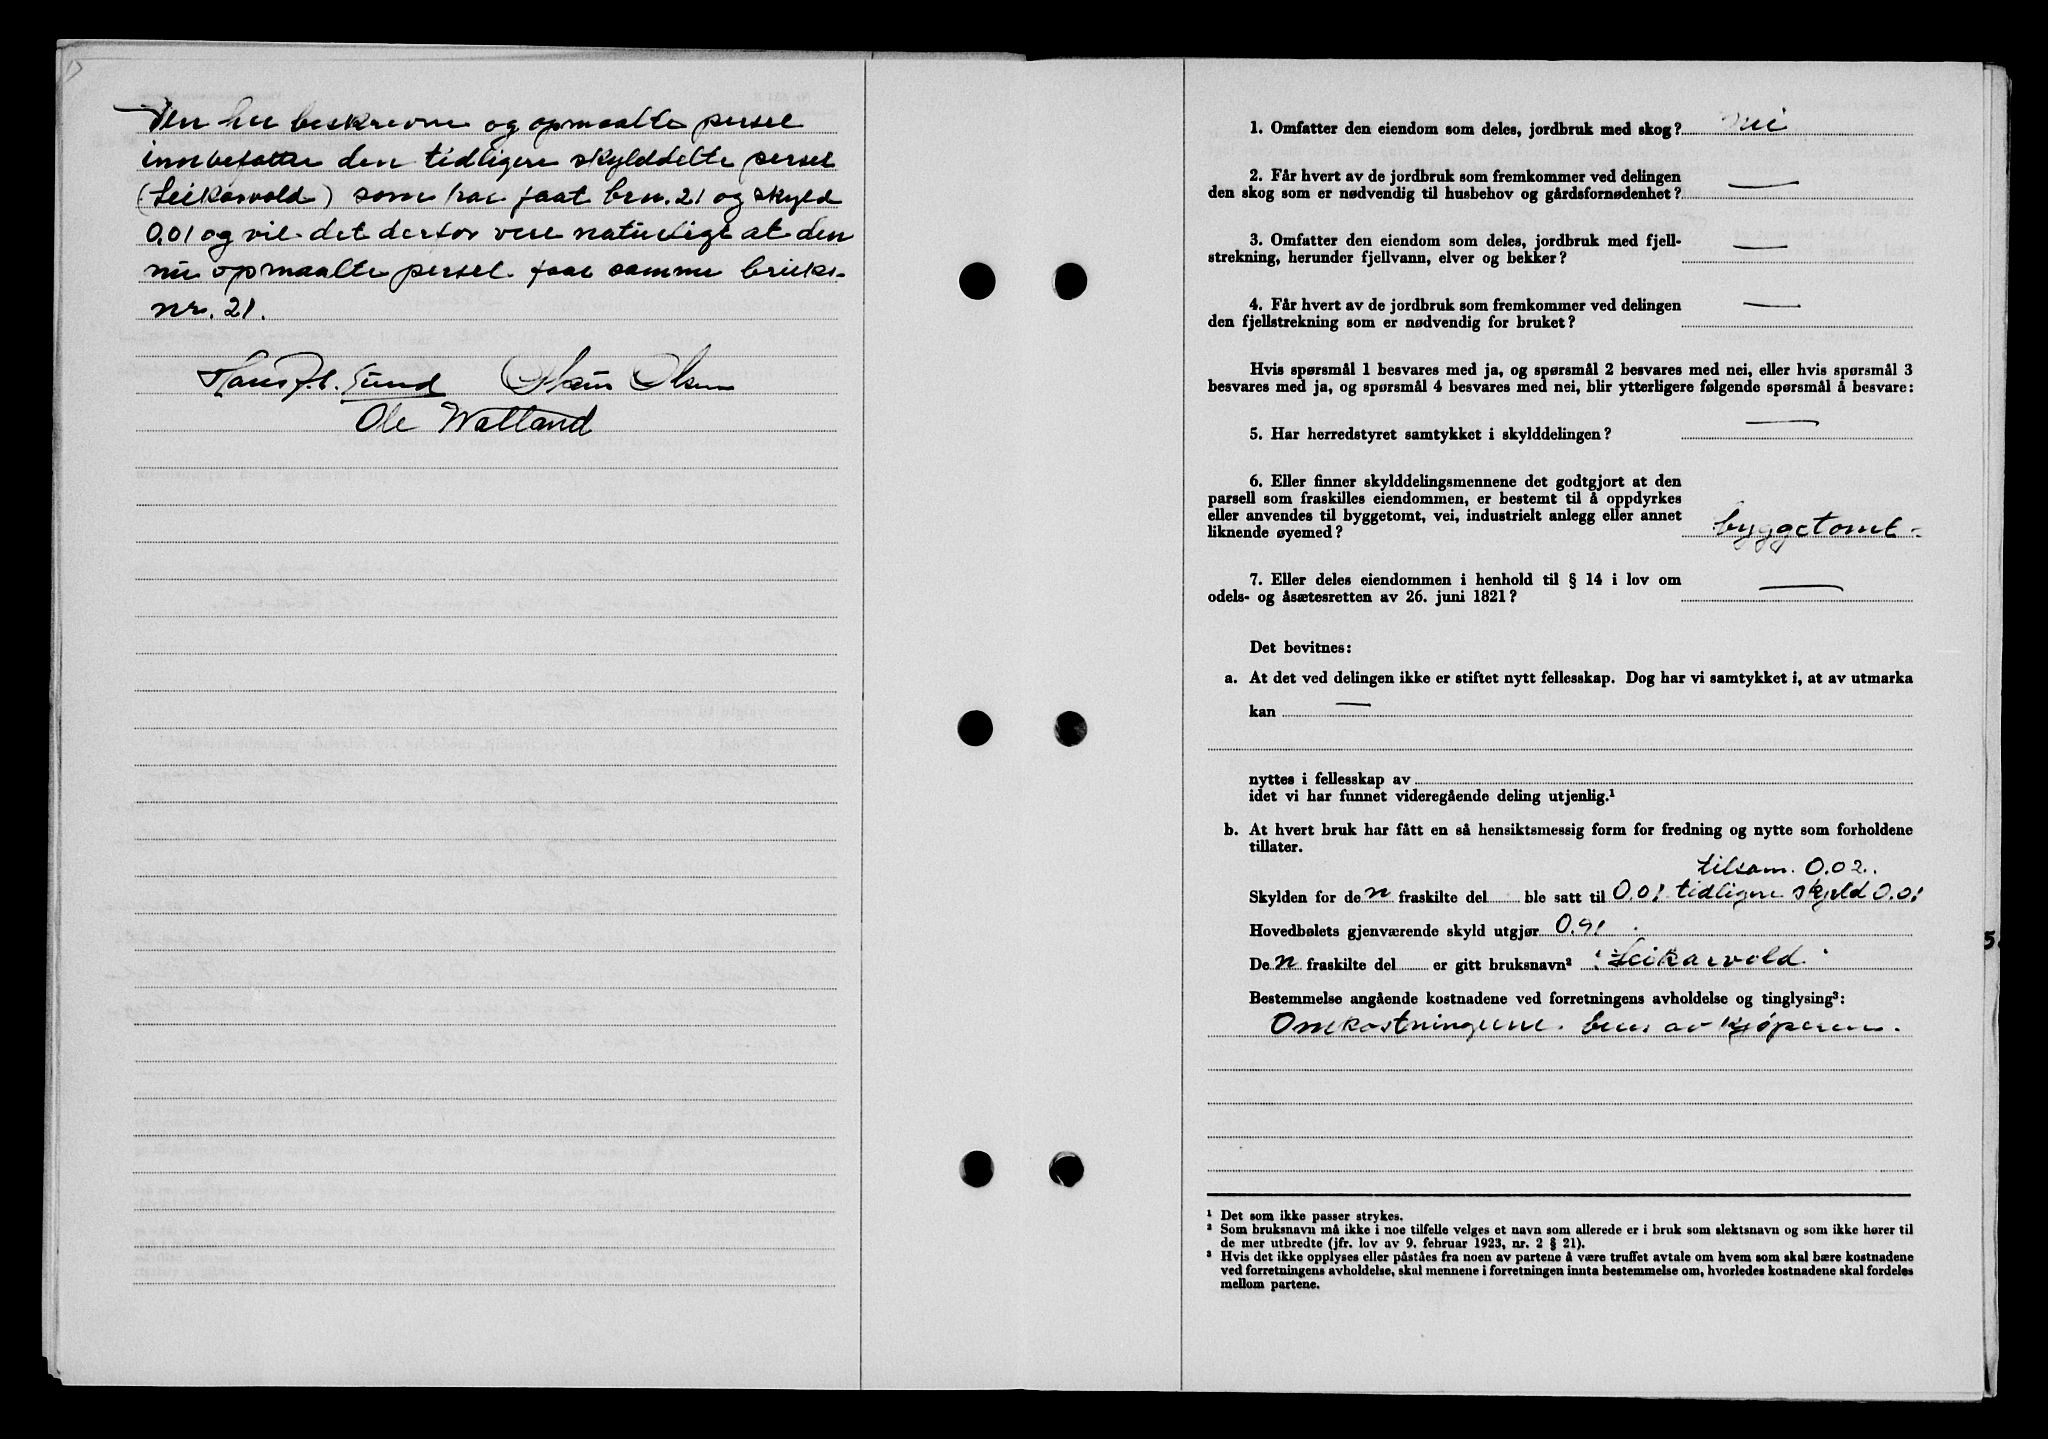 Den her beskrevne og opmaalte persel
innbefatte den tidligere skylddelte persel
(Leikarvold) som har faat brn. 21 og skyld
0,01 og vil det derfor vere naturligt at den
nu opmaalte persel faar samme bruks-
nr. 21.
Hans A. L. Sund Olsen
Ole Watland
1. Omfatter den eiendom som deles, jordbruk med skog? nei
2. Får hvert av de jordbruk som fremkommer ved delingen
den skog som er nødvendig til husbehov og gårdsfornødenhet? —
3. Omfatter den eiendom som deles, jordbruk med fjell-
strekning, herunder fjellvann, elver og bekker? —
4. Får hvert av de jordbruk som fremkommer ved delingen
den fjellstrekning som er nødvendig for bruket? —
Hvis spørsmål 1 besvares med ja, og spørsmål 2 besvares med nei, eller hvis spørsmål 3
besvares med ja, og spørsmål 4 besvares med nei, blir ytterligere følgende spørsmål å besvare:
5. Har herredstyret samtykket i skylddelingen? —
6. Eller finner skylddelingsmennene det godtgjort at den
parsell som fraskilles eiendommen, er bestemt til å oppdyrkes
eller anvendes til byggetomt, vei, industrielt anlegg eller annet
liknende øyemed? byggetomt -
7. Eller deles eiendommen i henhold til § 14 i lov om
odels- og åsætesretten av 26. juni 1821? —
Det bevitnes:
a. At det ved delingen ikke er stiftet nytt fellesskap. Dog har vi samtykket i, at av utmarka
kan —
nyttes i fellesskap av
idet vi har funnet videregående deling utjenlig.¹
b. At hvert bruk har fått en så hensiktsmessig form for fredning og nytte som forholdene
tillater.
tilsam. 0.02.
Skylden for den fraskilte del ble satt til 0.01 tidligere skyld 0.01
Hovedbølets gjenværende skyld utgjør 0.91
Den fraskilte del er gitt bruksnavn² "Leikarvold"
Bestemmelse angående kostnadene ved forretningens avholdelse og tinglysing³:
Omkostningene beres av kjøperen.
¹ Det som ikke passer strykes.
² Som bruksnavn må ikke i noe tilfelle velges et navn som allerede er i bruk som slektsnavn og som ikke hører til
de mer utbredte (jfr. lov av 9. februar 1923, nr. 2 § 21).
³ Hvis det ikke opplyses eller påståes fra noen av partene å være truffet avtale om hvem som skal bære kostnadene
ved forretningens avholdelse, skal mennene i forretningen innta bestemmelse om, hvorledes kostnadene skal fordeles
mellom partene.